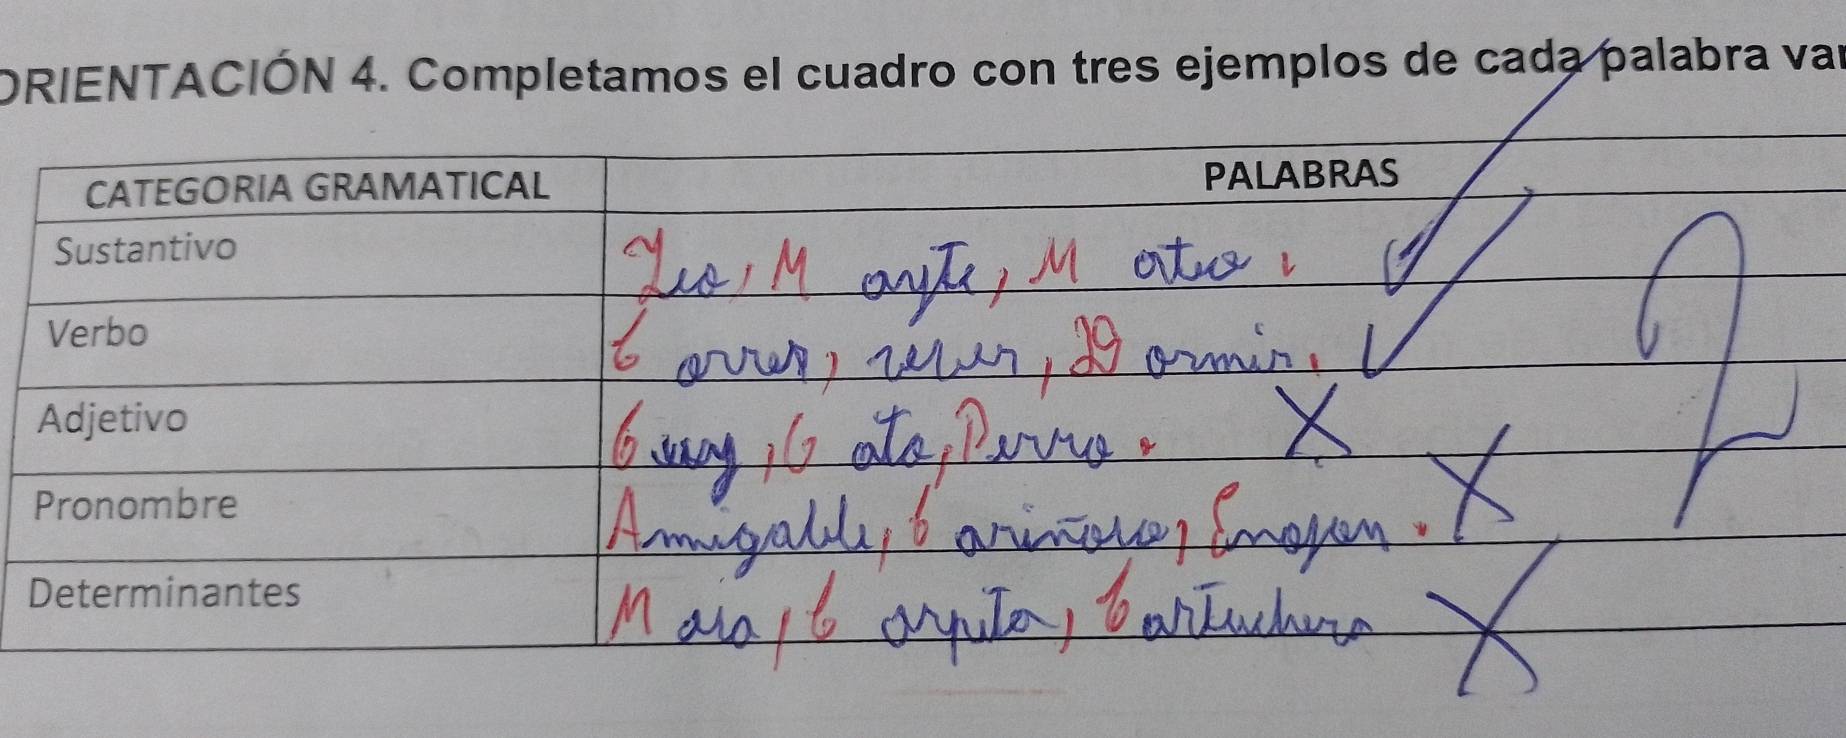 ORIENTACIÓN 4. Completamos el cuadro con tres ejemplos de cada palabra var
CATEGORIA GRAMATICAL PALABRAS
Sustantivo Leo, Mayte, Mateo.
Verbo Correr, Dormir.
Adjetivo Cuuy, Gato, Perro.
Pronombre Amigable, Cariñoso, Enojon.
Determinantes Mesa, Carpeta, Cartuchera